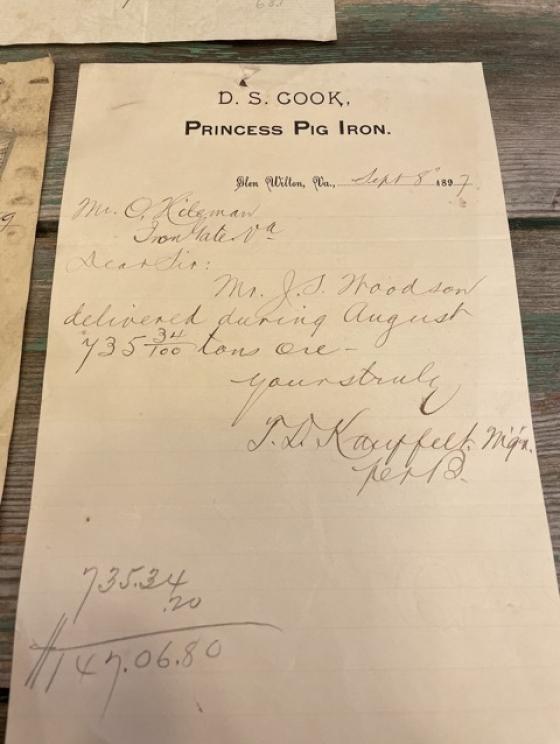 D. S. COOK,
PRINCESS PIG IRON.
Glen Wilton, Va., Sept 8" 1897
Mr. O, Hileman
Iron Gate Va
Dear Sir:
Mr. J. S. Woodson
delivered during August
735 34/100 tons ore –
Yours truly
T. D. Kauffelt. Mg'r.
per B.
735.34
.20
$147.06.80